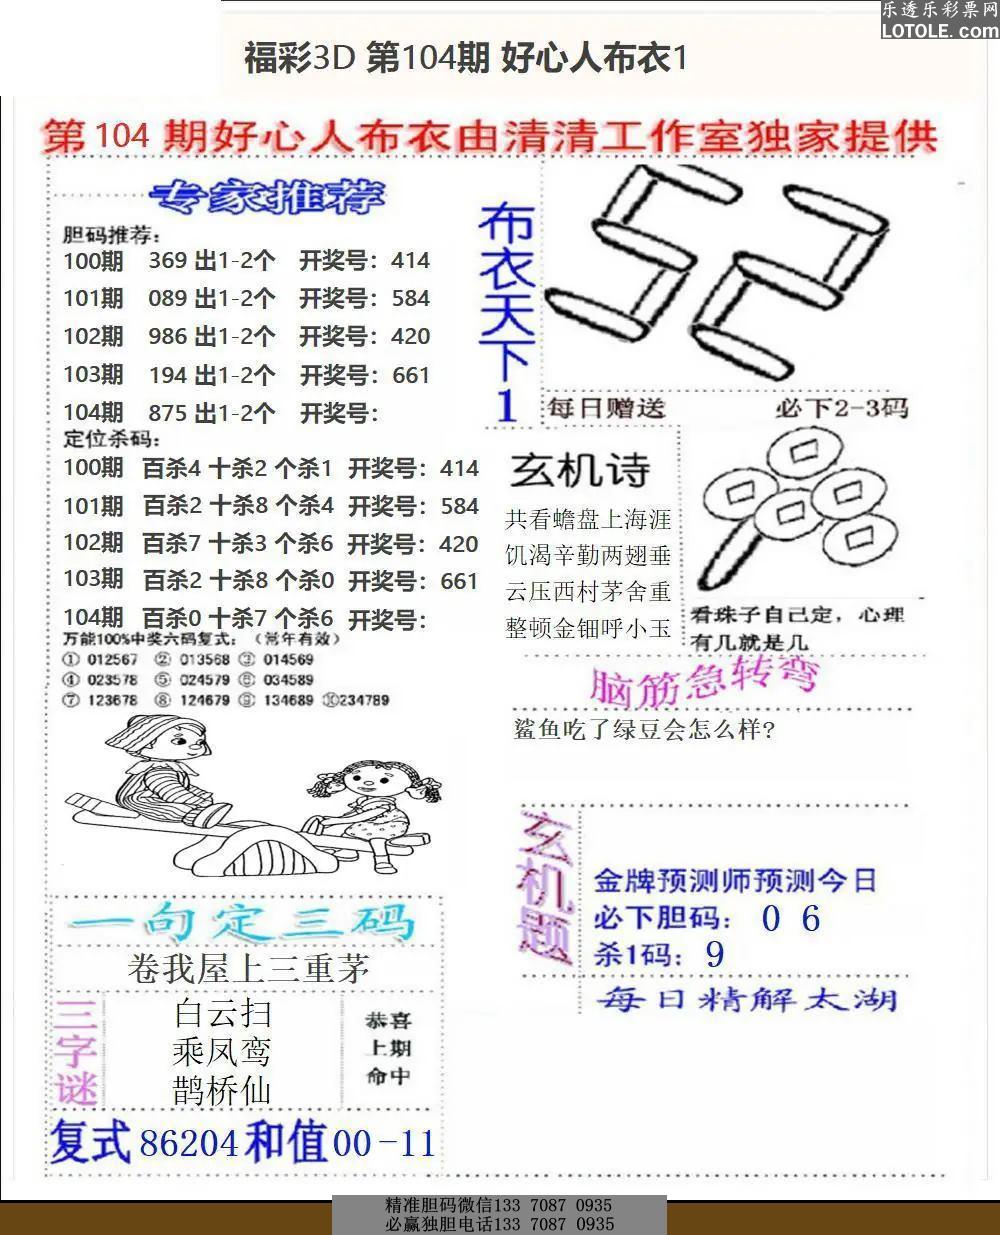 乐透乐彩票网
LOTOLE.com
福彩3D 第104期 好心人布衣1
第 104 期好心人布衣由清清工作室独家提供
专家推荐
胆码推荐：
100期 369 出1-2个 开奖号：414
101期 089 出1-2个 开奖号：584
102期 986 出1-2个 开奖号：420
103期 194 出1-2个 开奖号：661
104期 875 出1-2个 开奖号：
定位杀码：
100期 百杀4 十杀2 个杀1 开奖号：414
101期 百杀2 十杀8 个杀4 开奖号：584
102期 百杀7 十杀3 个杀6 开奖号：420
103期 百杀2 十杀8 个杀0 开奖号：661
104期 百杀0 十杀7 个杀6 开奖号：
万能100%中奖六码复式：（常年有效）
① 012567 ② 013568 ③ 014569
④ 023578 ⑤ 024579 ⑥ 034589
⑦ 123678 ⑧ 124679 ⑨ 134689 ⑩234789
布衣天下1
52
每日赠送 必下2-3码
玄机诗
共看蟾盘上海涯
饥渴辛勤两翅垂
云压西村茅舍重
整顿金钿呼小玉
看珠子自己定，心理
有几就是几
脑筋急转弯
鲨鱼吃了绿豆会怎么样?
玄机题
金牌预测师预测今日
必下胆码： 0 6
杀1码： 9
每日精解太湖
一句定三码
卷我屋上三重茅
三字谜
白云扫
乘凤鸾
鹊桥仙
恭喜
上期
命中
复式 86204 和值 00-11
精准胆码微信133 7087 0935
必赢独胆电话133 7087 0935